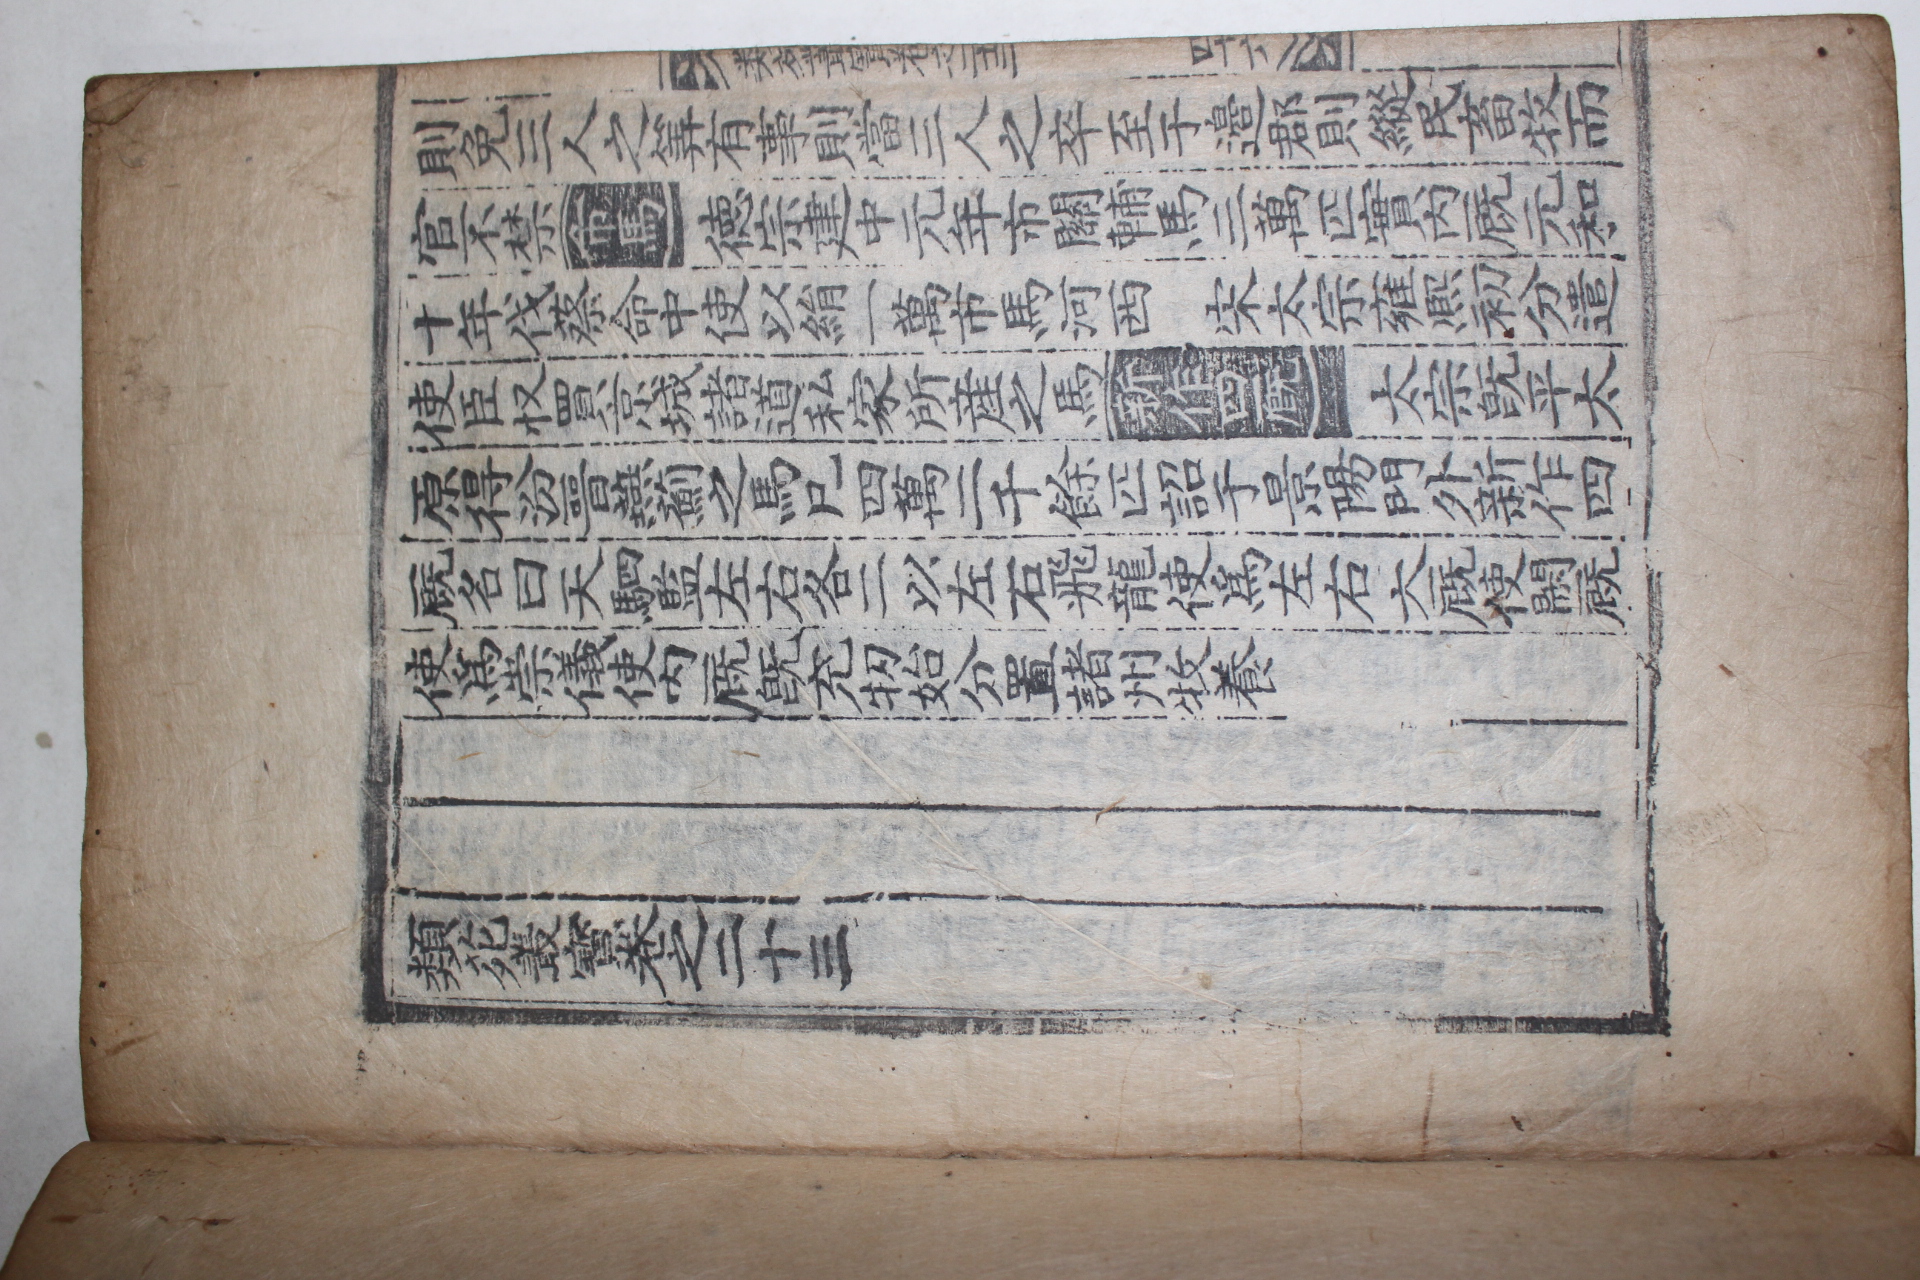 類苑叢寶卷之二十三
四十六
則免三人之筭有事則當三人之卒至于邉郡則縱民畜牧而
官不禁市馬德宗建中元年市關輔馬三萬匹實内厩元和
十年伐蔡命中使以絹一萬市馬河西 宋太宗雍熙初分遣
使臣収買京城諸道私家所産之馬新作四厩太宗旣平太
原得汾晉燕薊之馬凡四萬二千餘匹詔于景陽門外新作四
厩名曰天駟監左右各二以左右飛龍使爲左右六厩使閑厩
使爲崇儀使内厩旣充牣始分置諸州牧養
類苑叢寶卷之二十三